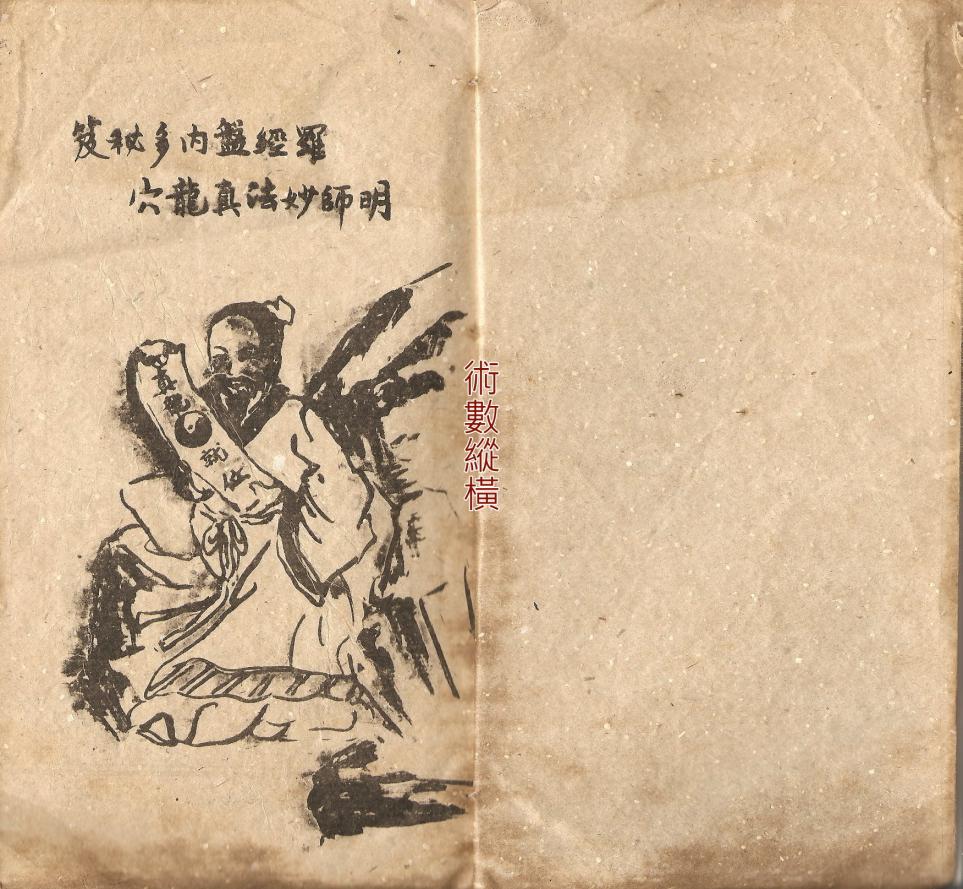 羅經盤內多秘笈
明師妙法真龍穴
真
術數縱橫